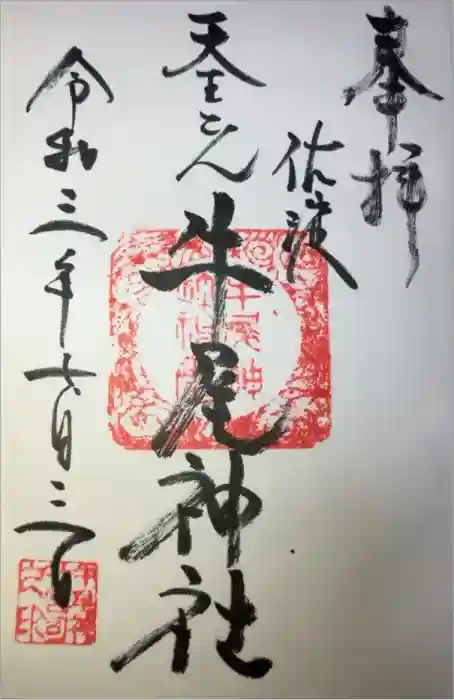 奉拝
佐渡
天王さん
牛尾神社
令和三年六月三日